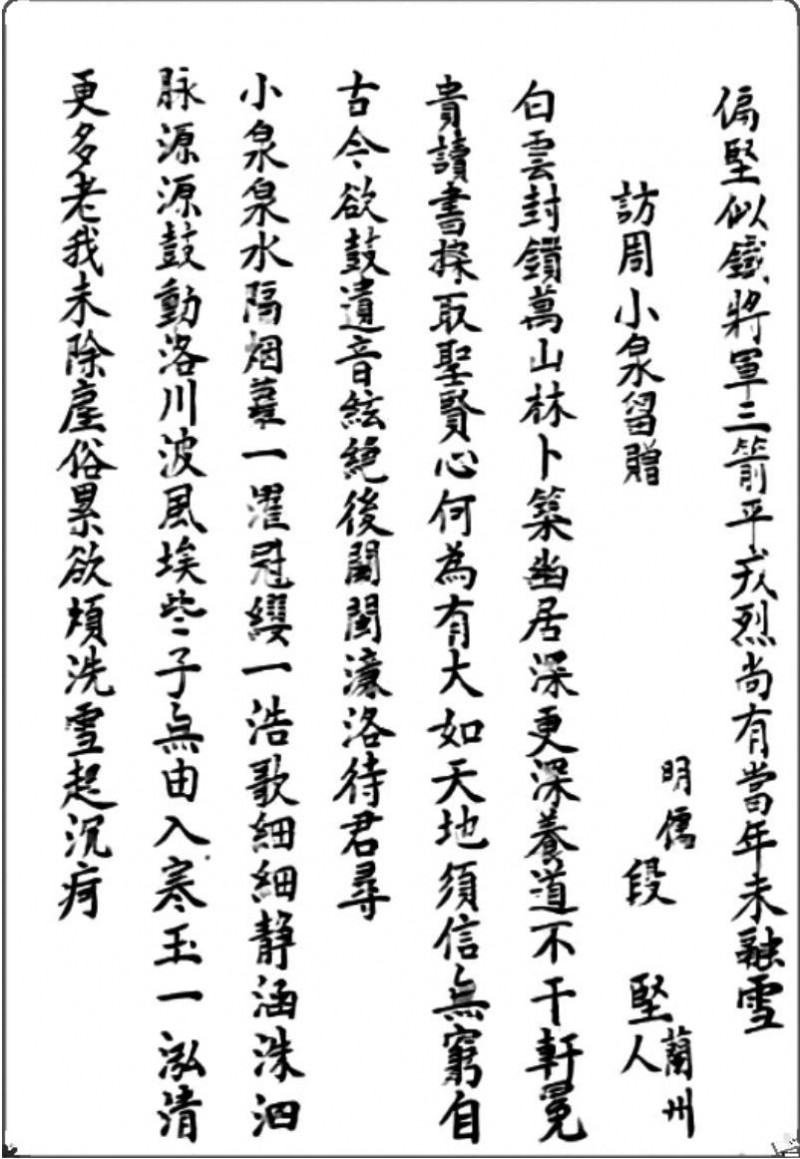 偏堅似鐵將軍三箭平戎烈尚有當年未融雪
訪周小泉留贈
明儒
段堅
蘭州
人
白雲封鎖萬山林卜築幽居深更深養道不干軒冕
貴讀書探取聖賢心何為有大如天地須信無窮自
古今欲鼓遺音絃絕後關閩濂洛待君尋
小泉泉水隔烟蘿一濯冠纓一浩歌細細静涵洙泗
脉源源鼓動洛川波風埃些子無由入寒玉一泓清
更多老我未除塵俗累欲煩洗雪起沉疴